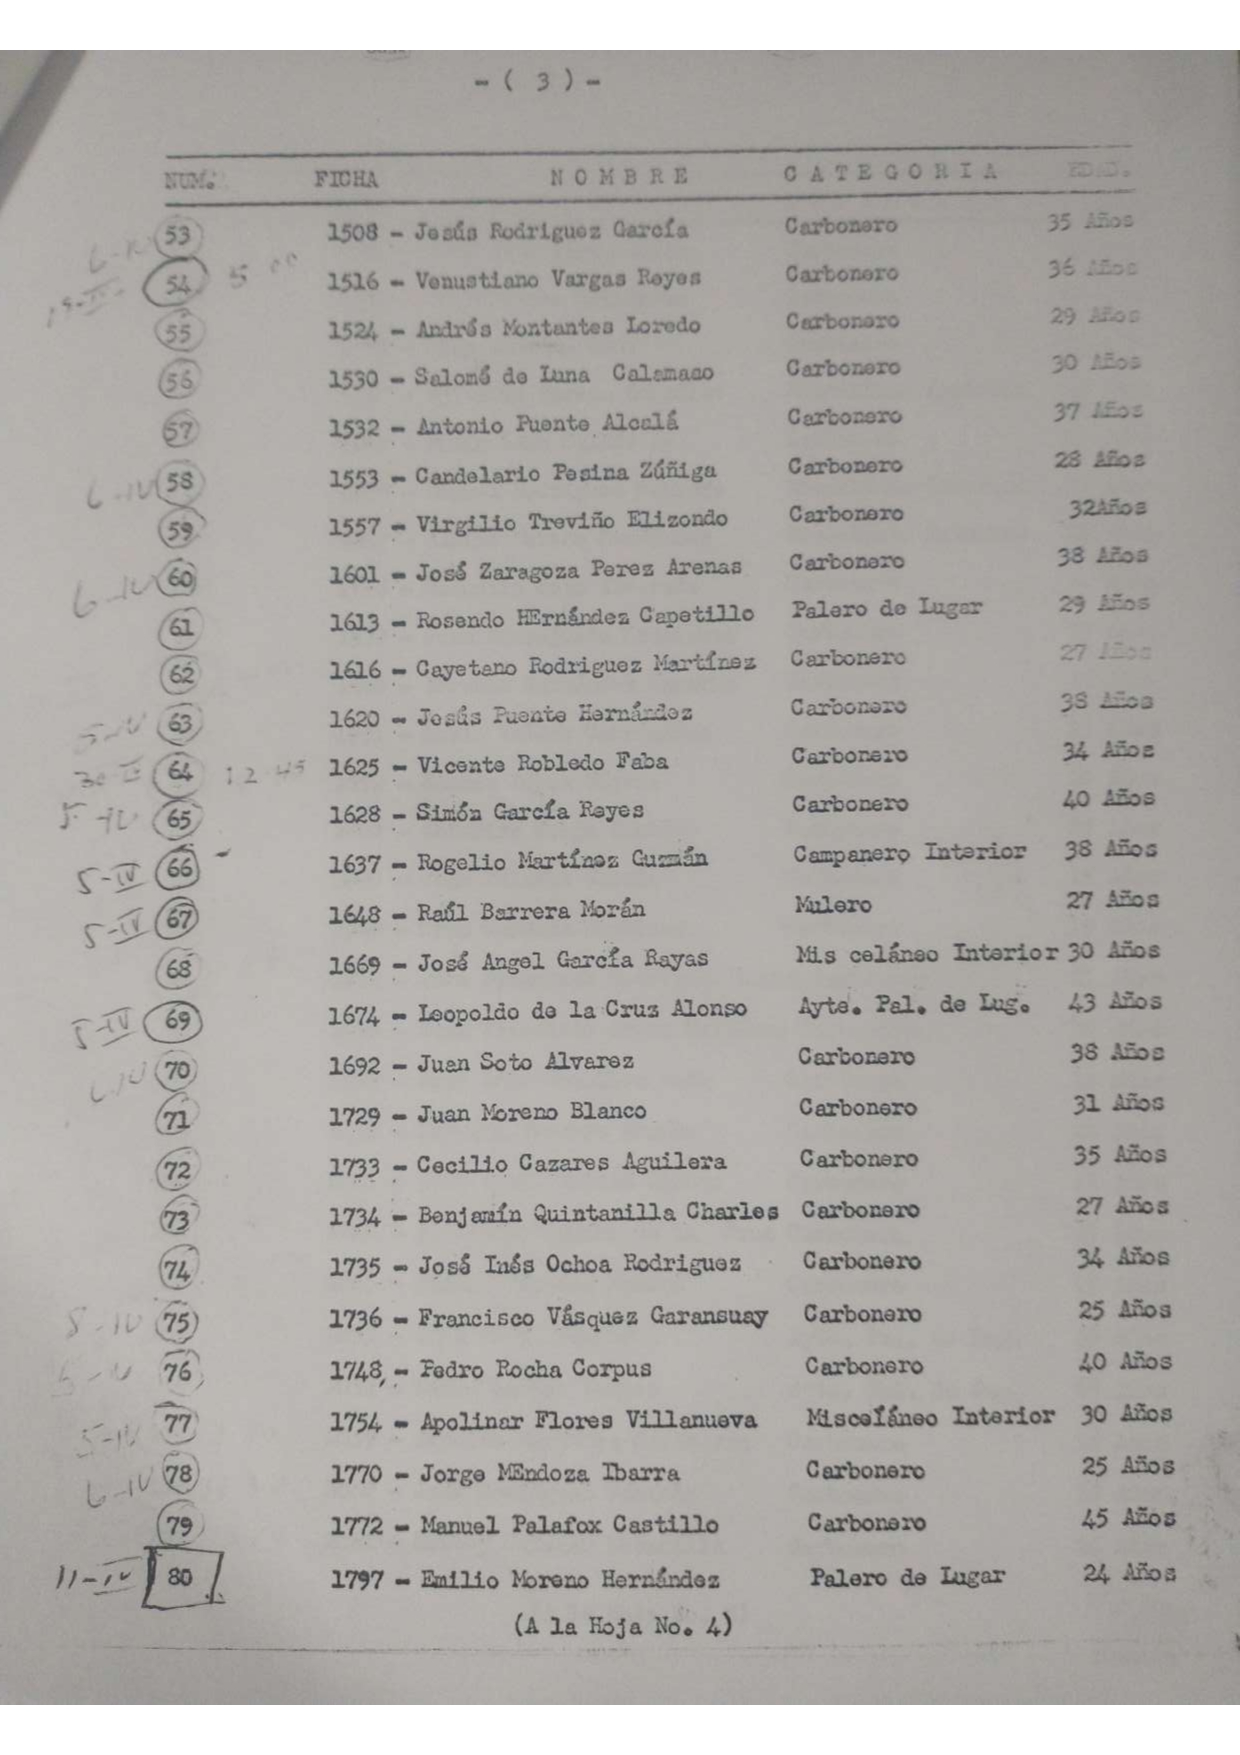 -( 3 )-
NUM. FICHA NOMBRE CATEGORIA EDAD.
53 1508 - Jesús Rodriguez García Carbonero 35 Años
54 5 00 1516 - Venustiano Vargas Reyes Carbonero 36 Años
55 1524 - Andrés Montantes Loredo Carbonero 29 Años
56 1530 - Salomé de Luna Calamaco Carbonero 30 Años
57 1532 - Antonio Puente Alcalá Carbonero 37 Años
6-IV 58 1553 - Candelario Pesina Zúñiga Carbonero 28 Años
59 1557 - Virgilio Treviño Elizondo Carbonero 32Años
6-IV 60 1601 - José Zaragoza Perez Arenas Carbonero 38 Años
61 1613 - Rosendo HErnández Capetillo Palero de Lugar 29 Años
62 1616 - Cayetano Rodriguez Martínez Carbonero 27 Años
5-IV 63 1620 - Jesús Puente Hernández Carbonero 38 Años
64 12 45 1625 - Vicente Robledo Faba Carbonero 34 Años
5-IV 65 1628 - Simón García Reyes Carbonero 40 Años
5-IV 66 1637 - Rogelio Martínez Guzmán Campanero Interior 38 Años
5-IV 67 1648 - Raúl Barrera Morán Mulero 27 Años
68 1669 - José Angel García Rayas Mis celáneo Interior 30 Años
5-IV 69 1674 - Leopoldo de la Cruz Alonso Ayte. Pal. de Lug. 43 Años
6-IV 70 1692 - Juan Soto Alvarez Carbonero 38 Años
71 1729 - Juan Moreno Blanco Carbonero 31 Años
72 1733 - Cecilio Cazares Aguilera Carbonero 35 Años
73 1734 - Benjamín Quintanilla Charles Carbonero 27 Años
74 1735 - José Inés Ochoa Rodriguez Carbonero 34 Años
5-IV 75 1736 - Francisco Vásquez Garansuay Carbonero 25 Años
5-IV 76 1748, - Pedro Rocha Corpus Carbonero 40 Años
5-IV 77 1754 - Apolinar Flores Villanueva Misceláneo Interior 30 Años
6-IV 78 1770 - Jorge MEndoza Ibarra Carbonero 25 Años
79 1772 - Manuel Palafox Castillo Carbonero 45 Años
11-IV 80 1797 - Emilio Moreno Hernández Palero de Lugar 24 Años
(A la Hoja No. 4)